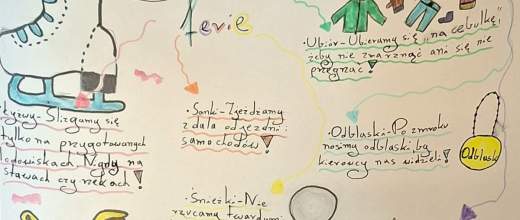 ferie
·Ubiór-Ubieramy się „na cebulkę",
żeby nie zmarznąć ani się nie
przegrzać!
·Łyżwy-Ślizgamy się
tylko na przygotowanych
lodowiskach. Nigdy na
stawach czy rzekach!
·Sanki-Zjeżdżamy
z dala od jezdni i
samochodów!
·Odblaski-Po zmroku
nosimy odblaski, by
kierowcy nas widzieli!
Odblask
·Śnieżki-Nie
rzucamy twardymi